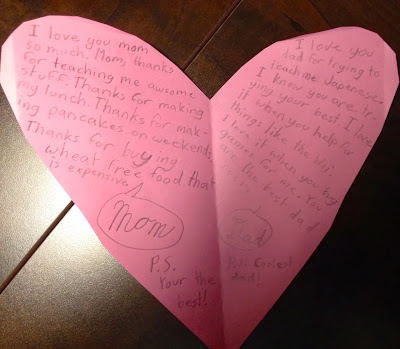 I love you mom
so much. Mom, thanks
for teaching me awsome
stuff. Thanks for making
my lunch. Thanks for mak-
ing pancakes on weekends.
Thanks for buying
wheat free food that
is expensive
Mom
P.S.
Your the
best!
I love you
dad for trying to
teach me Japenese.
I know you are tr-
ying your best I love
it when you help for
things like the Wii.
I love it when you buy
games for me. You
are the best dad
Dad
P.S. Coolest
dad!